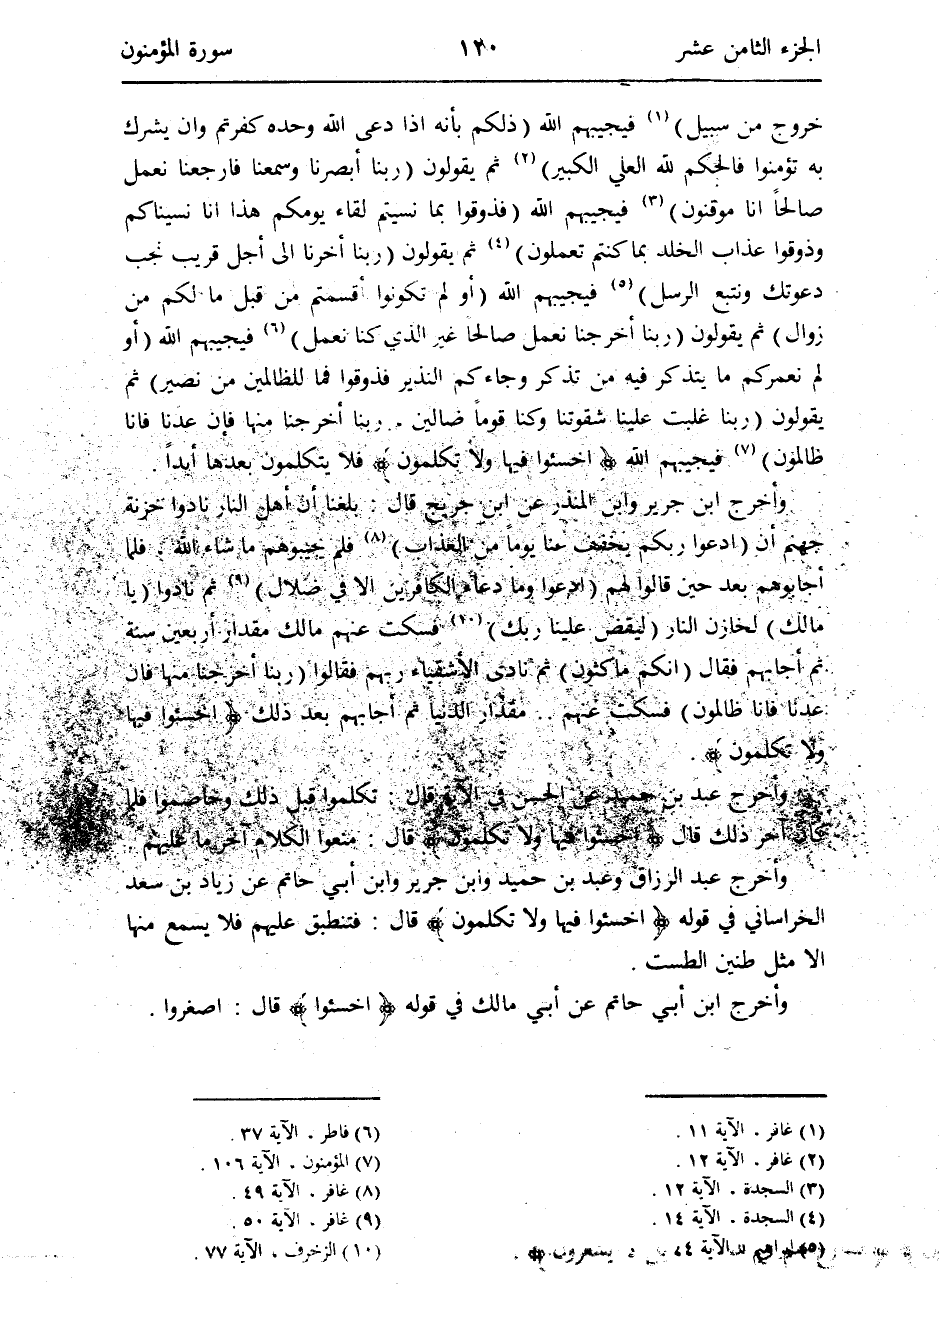 الجزء الثامن عشر ١٢٠ سورة المؤمنون
خروج من سبيل) (١) فيجيبهم الله (ذلكم بأنه اذا دعى الله وحده كفرتم وان يشرك
به تؤمنوا فالحكم لله العلي الكبير) (٢) ثم يقولون (ربنا أبصرنا وسمعنا فارجعنا نعمل
صالحاً انا موقنون) (٣) فيجيبهم الله (فذوقوا بما نسيتم لقاء يومكم هذا انا نسيناكم
وذوقوا عذاب الخلد بما كنتم تعملون) (٤) ثم يقولون (ربنا أخرنا الى أجل قريب نجب
دعوتك ونتبع الرسل) (٥) فيجيبهم الله (أو لم تكونوا أقسمتم من قبل ما لكم من
زوال) ثم يقولون (ربنا أخرجنا نعمل صالحا غير الذي كنا نعمل) (٦) فيجيبهم الله (أو
لم نعمركم ما يتذكر فيه من تذكر وجاءكم النذير فذوقوا فما للظالمين من نصير) ثم
يقولون (ربنا غلبت علينا شقوتنا وكنا قوماً ضالين . ربنا أخرجنا منها فإن عدنا فانا
ظالمون) (٧) فيجيبهم الله ﴿ اخسئوا فيها ولا تكلمون ﴾ فلا يتكلمون بعدها أبداً .
وأخرج ابن جرير وابن المنذر عن ابن جريج قال : بلغنا أن أهل النار نادوا خزنة
جهنم أن (ادعوا ربكم يخفف عنا يوماً من العذاب) (٨) فلم يجيبوهم ما شاء الله . فلما
أجابوهم بعد حين قالوا لهم (ادعوا وما دعاء الكافرين الا في ضلال) (٩) ثم نادوا (يا
مالك) لخازن النار (ليقض علينا ربك) (١٠) فسكت عنهم مالك مقدار أربعين سنة
ثم أجابهم فقال (انكم ماكثون) ثم نادى الأشقياء ربهم فقالوا (ربنا أخرجنا منها فان
عدنا فانا ظالمون) فسكت عنهم .. مقدار الدنيا ثم أجابهم بعد ذلك ﴿ اخسئوا فيها
ولا تكلمون ﴾ .
وأخرج عبد بن حميد عن الحسن في الآية قال : تكلموا قبل ذلك وخاصموا فلما
كان آخر ذلك قال ﴿ اخسئوا فيها ولا تكلمون ﴾ قال : منعوا الكلام آخر ما عليهم .
وأخرج عبد الرزاق وعبد بن حميد وابن جرير وابن أبي حاتم عن زياد بن سعد
الخراساني في قوله ﴿ اخسئوا فيها ولا تكلمون ﴾ قال : فتنطبق عليهم فلا يسمع منها
الا مثل طنين الطست .
وأخرج ابن أبي حاتم عن أبي مالك في قوله ﴿ اخسئوا ﴾ قال : اصغروا .
(١) غافر . الآية ١١ .
(٢) غافر . الآية ١٢ .
(٣) السجدة . الآية ١٢ .
(٤) السجدة . الآية ١٤ .
(٥) الآية ٤٤
(٦) فاطر . الآية ٣٧ .
(٧) المؤمنون . الآية ١٠٦ .
(٨) غافر . الآية ٤٩ .
(٩) غافر . الآية ٥٠ .
(١٠) الزخرف . الآية ٧٧ .